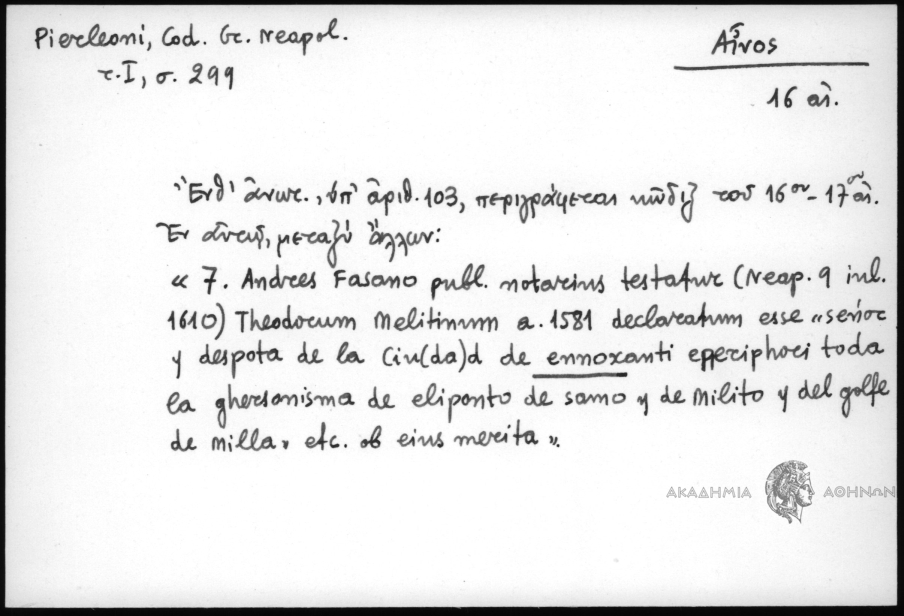 Pierleoni, Cod. Gr. Neapol.
τ. I, σ. 299
Αἶνος
16 αἰ.
Ἔνθ' ἀνωτ., ὑπ' ἀριθ. 103, περιγράφεται κῶδιξ τοῦ 16ου-17ου αἰ.
Ἐν αὐτῷ, μεταξὺ ἄλλων:
« 7. Andrees Fasano publ. notarius testatur (Neap. 9 iul.
1610) Theodorum Melitinum a. 1581 declaratum esse «señor
y despota de la Ciu(da)d de ennoxanti eperiphori toda
la ghersonisma de eliponto de samo y de Milito y del golfe
de milla» etc. ob eius merita».
ΑΚΑΔΗΜΙΑ ΑΘΗΝΩΝ